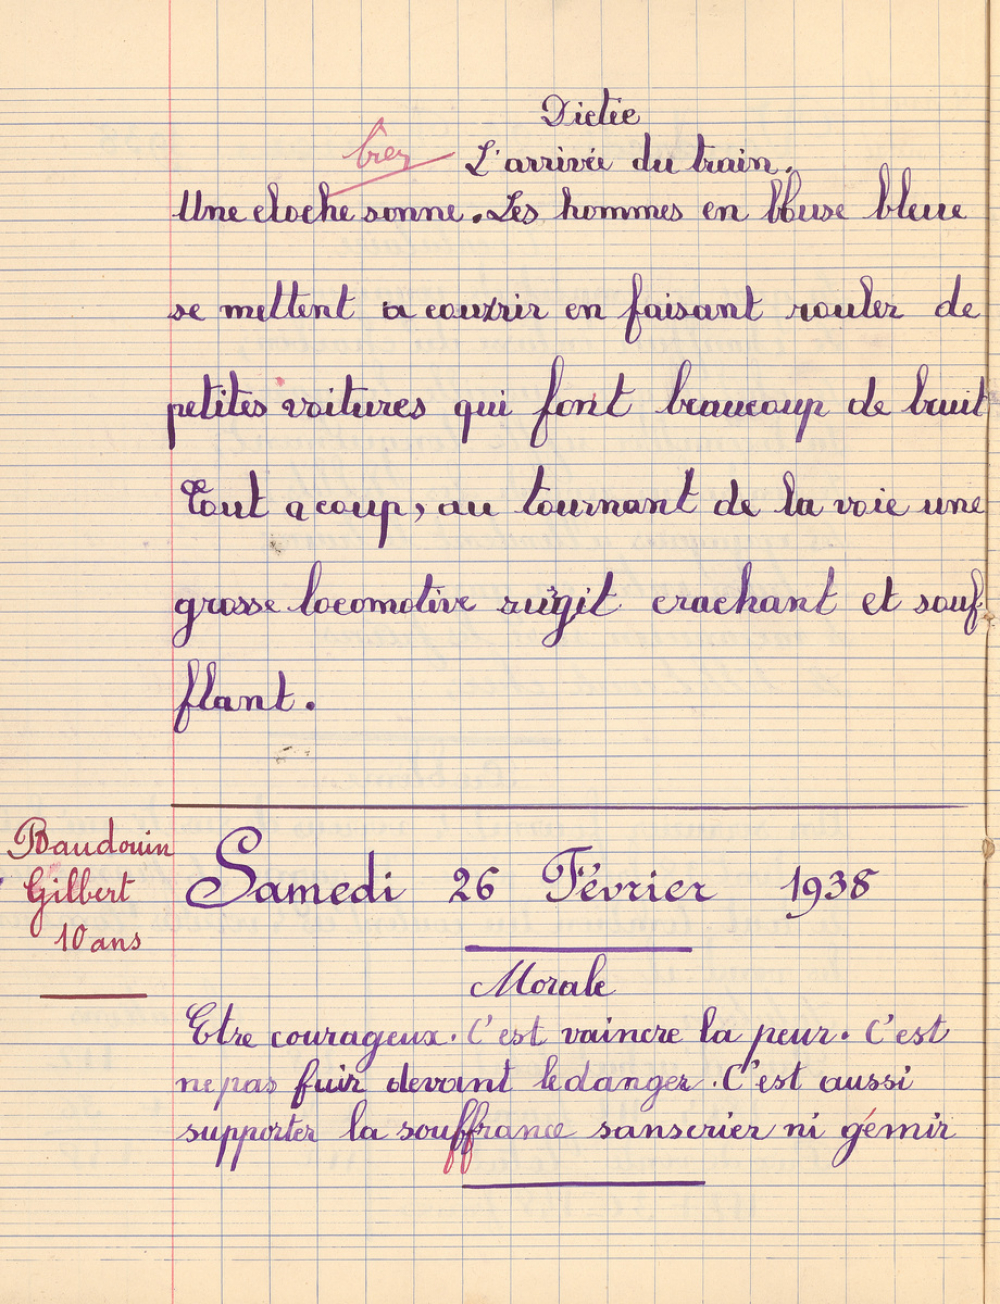 Dictée
L'arrivée du train.
Une cloche sonne. Les hommes en blouse bleue
se mettent a courir en faisant rouler de
petites voitures qui font beaucoup de bruit
Tout a coup, au tournant de la voie une
grosse locomotive surgit crachant et souf-
flant.
Baudouin
Gilbert
10 ans
Samedi 26 Février 1938
Morale
Etre courageux. C'est vaincre la peur. C'est
ne pas fuir devant le danger. C'est aussi
supporter la souffrance sans crier ni gémir